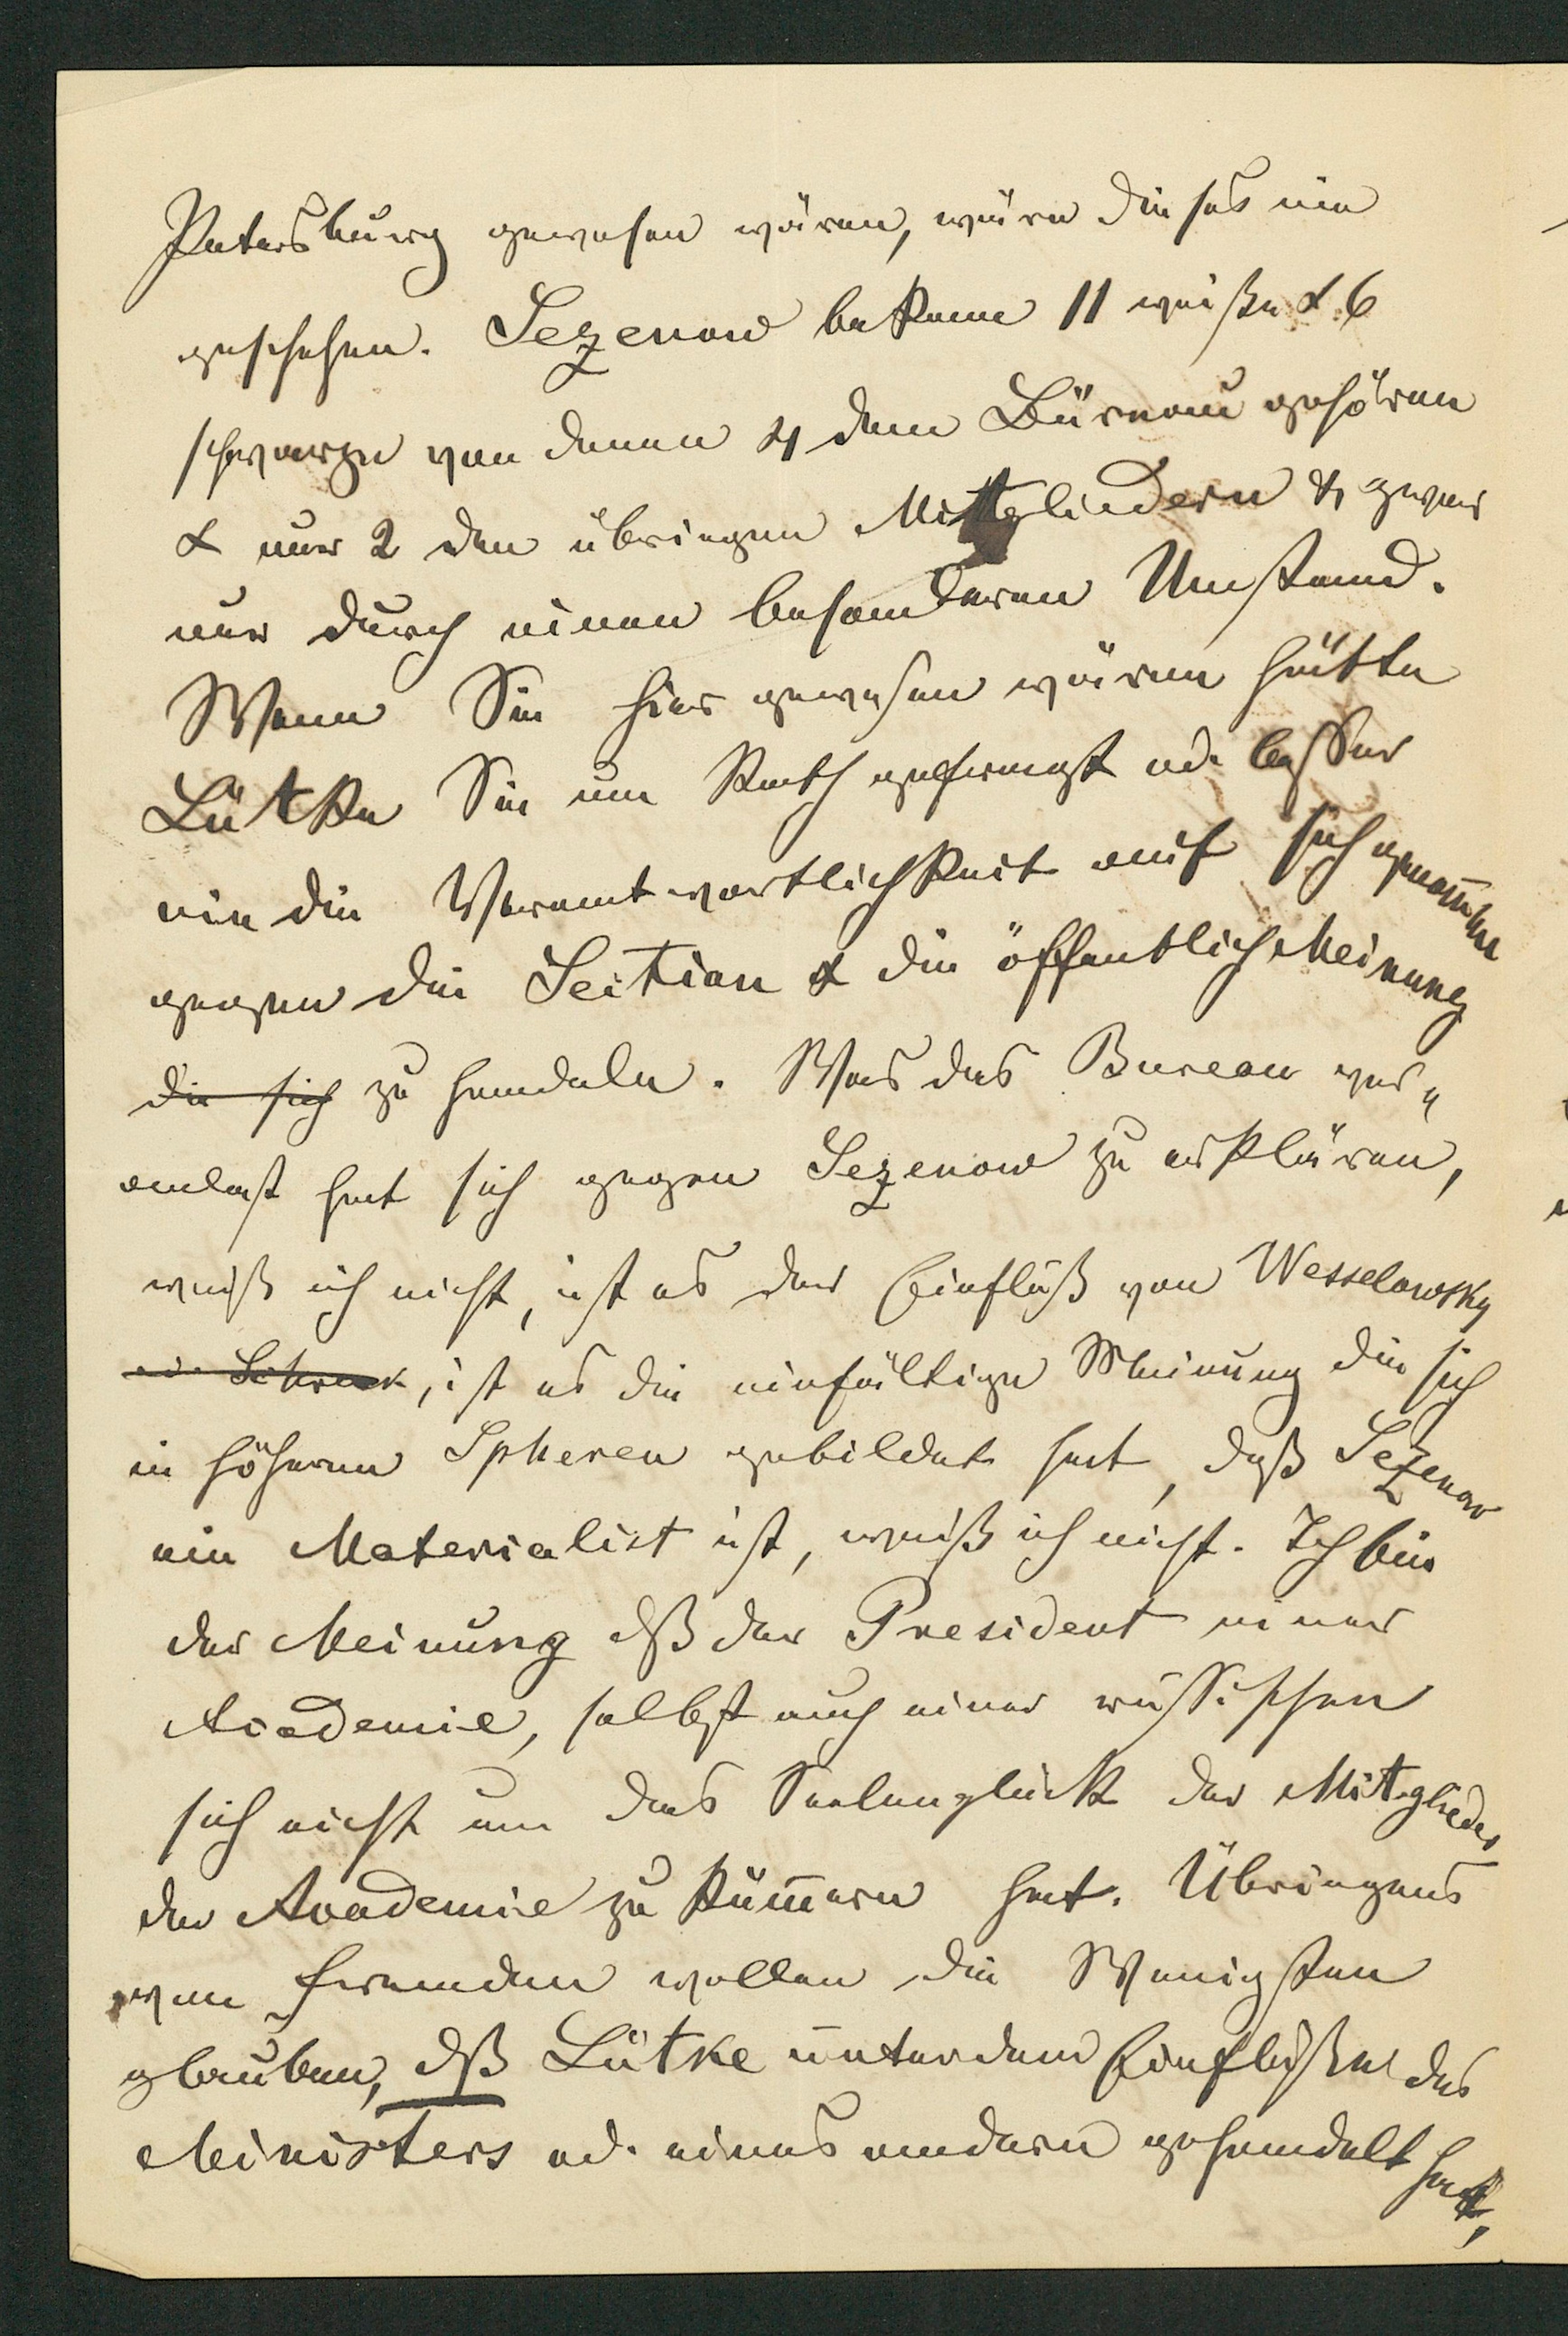 Petersburg gewesen wären, wäre dieses nie
geschehen. Sezenow bekam 11 weiße & 6
schwarze von denen 4 dem Büreau gehören
& nur 2 den übrigen Mitgliedern & zwar
nur durch einen besonderen Umstand.
Wenn Sie hier gewesen wären hätte
Lütke Sie um Rath gefragt od. besser
nie die Verantwortlichkeit auf sich genom̄en
gegen die Seition & die öffentlich Meinung
die sich zu handeln. Was das Bureau ver„
anlast hat sich gegen Sezenow zu erklären,
weiß ich nicht, ist es der Einfluß von Wesselowsky
od. Schrenk, ist es die einfältige Meinung die sich
in höheren Spheren gebildet hat, daß Sezenow
ein Materialist ist, weiß ich nicht. Ich bin
der Meinung dß der President einer
Academie, selbst auch einer russischen
sich nicht um das Seelenglück der Mitglieder
der Academie zu küm̄ern hat. Übrigens
von fremden wollen die Wenigsten
glauben, dß Lütke unter dem Einfluße des
Ministers od. eines andern gehandelt hat,